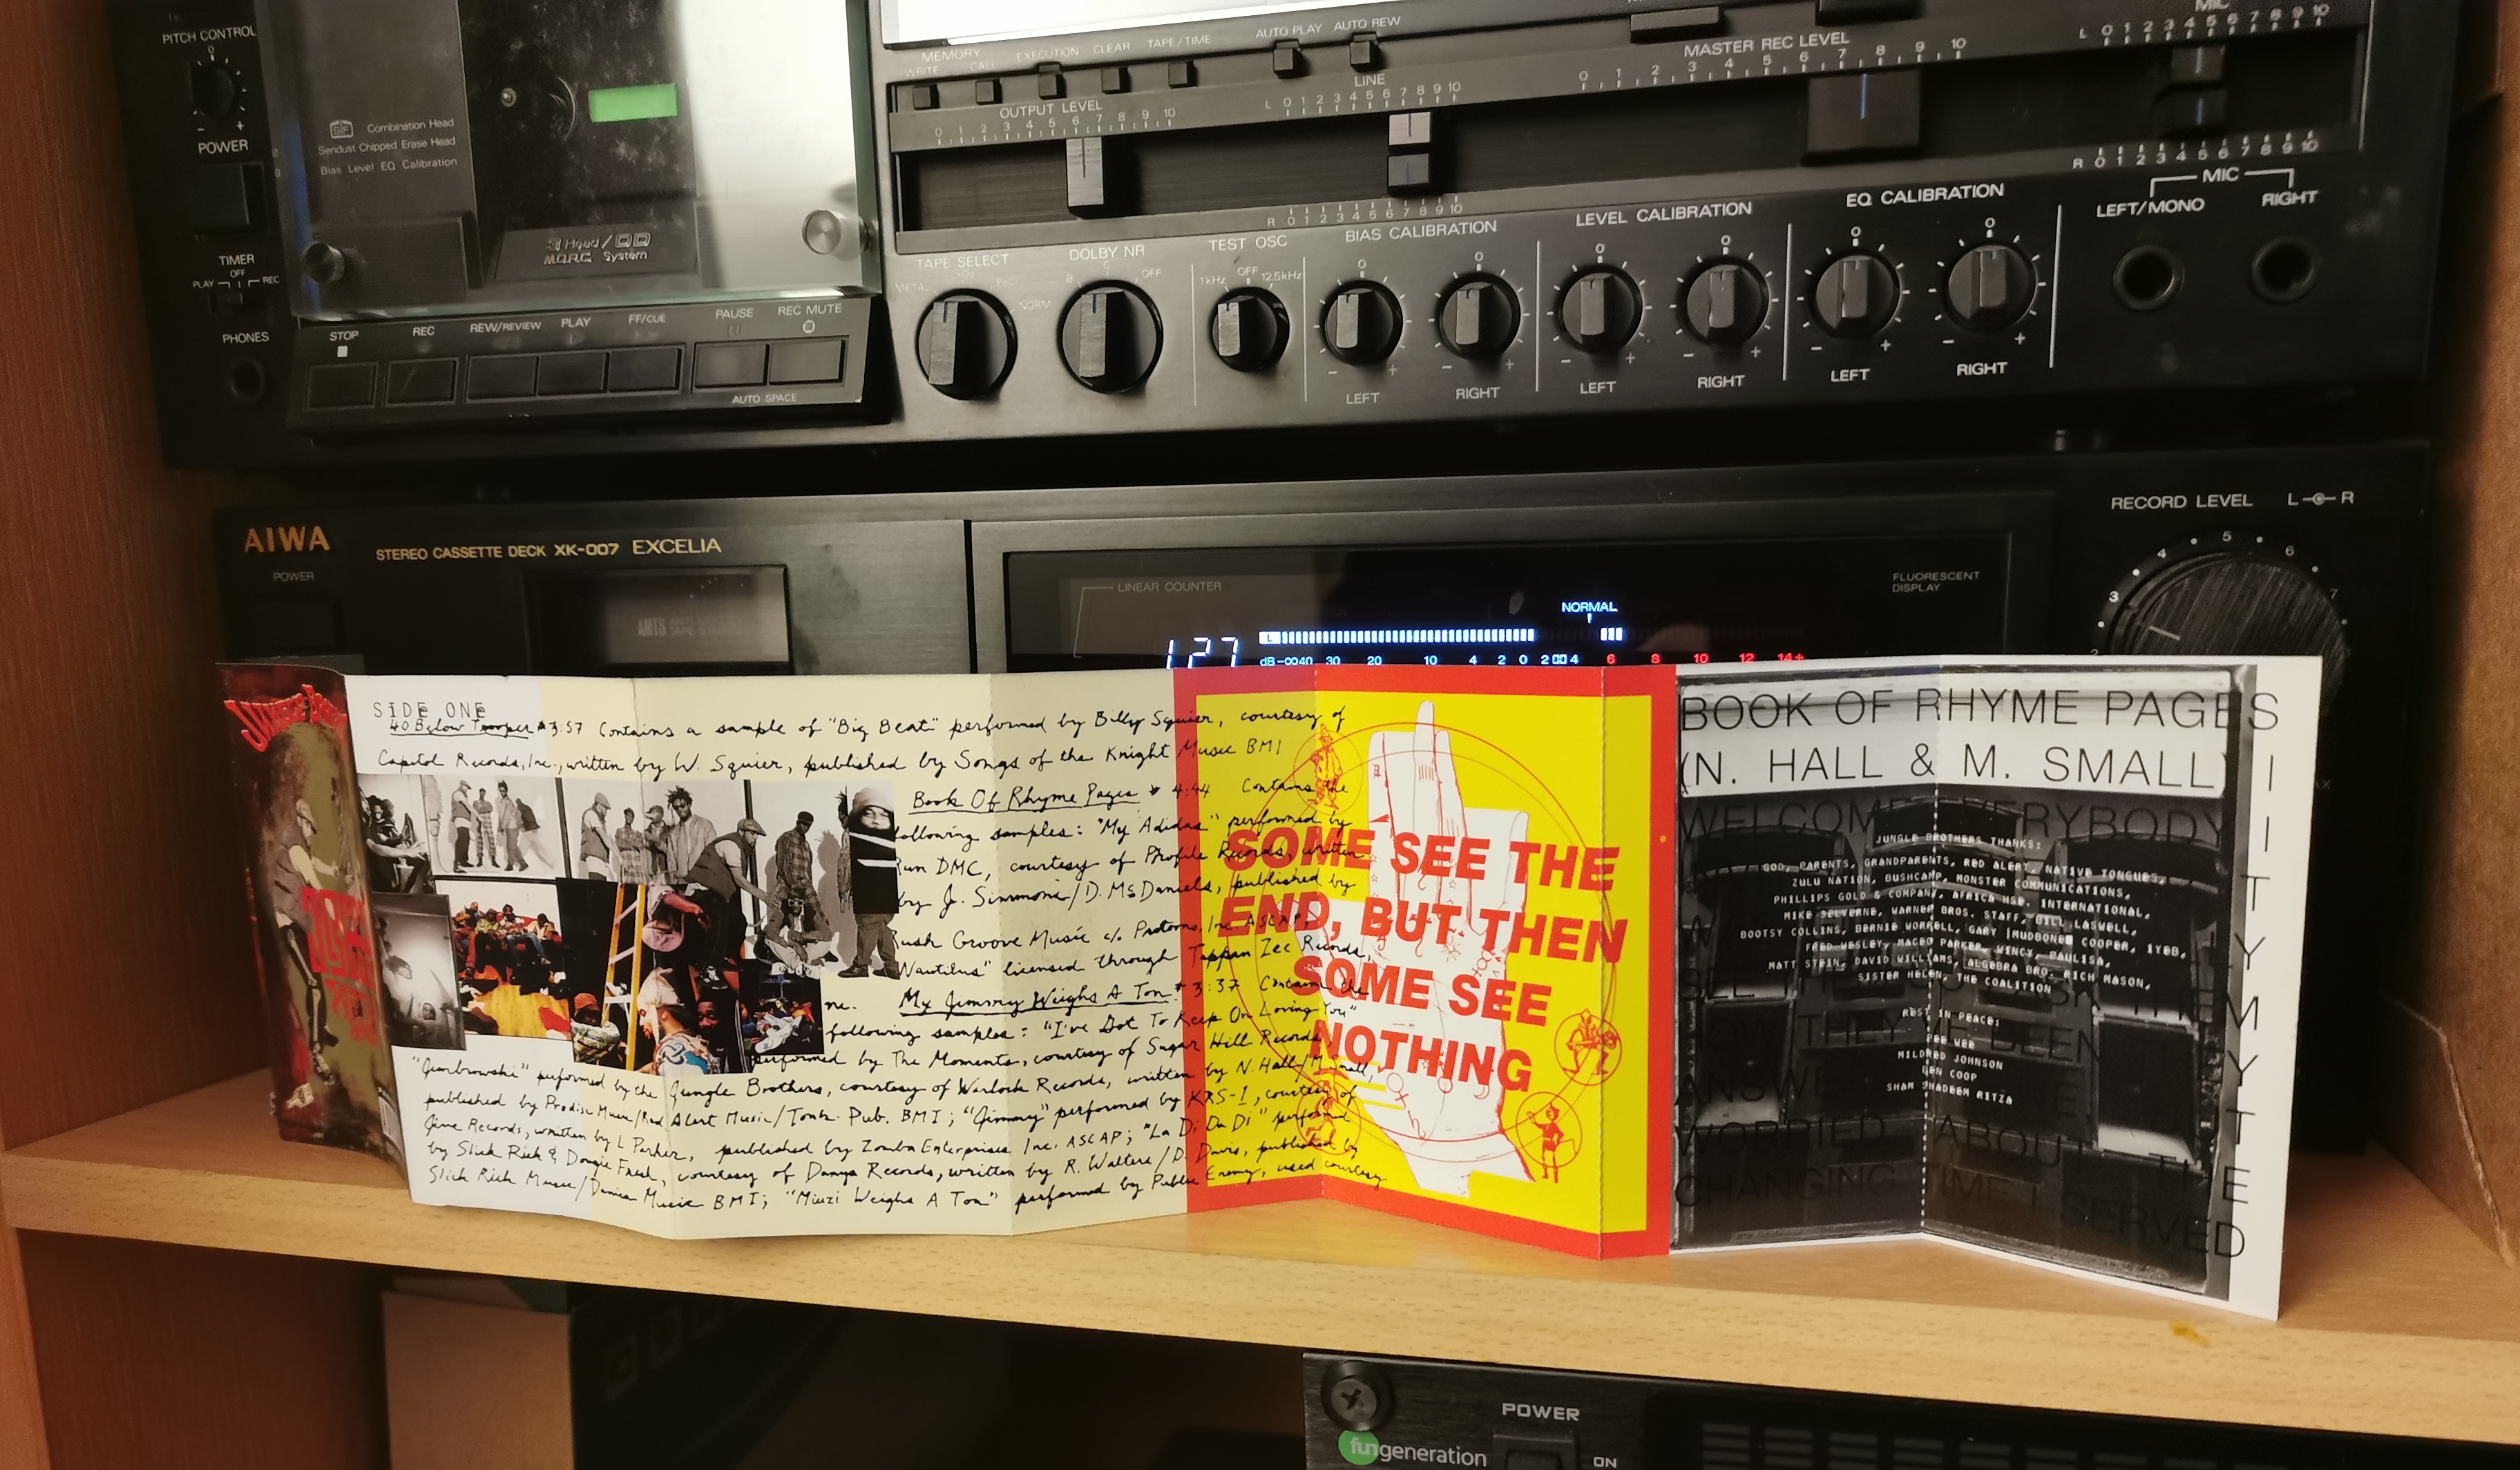 PITCH CONTROL
0
- +
POWER
TIMER
OFF
PLAY REC
PHONES
Combination Head
Sendust Chipped Erase Head
Bias Level EQ Calibration
3 Head/DD
M.Q.R.C. System
STOP REC REW/REVIEW PLAY FF/CUE PAUSE REC MUTE
AUTO SPACE
MEMORY
WRITE CALL EXECUTION CLEAR TAPE/TIME AUTO PLAY AUTO REW
OUTPUT LEVEL
0 1 2 3 4 5 6 7 8 9 10
LINE
L 0 1 2 3 4 5 6 7 8 9 10
R 0 1 2 3 4 5 6 7 8 9 10
MASTER REC LEVEL
0 1 2 3 4 5 6 7 8 9 10
MIC
L 0 1 2 3 4 5 6 7 8 9 10
R 0 1 2 3 4 5 6 7 8 9 10
TAPE SELECT
METAL NORM
DOLBY NR
B C OFF
TEST OSC
1kHz OFF 12.5kHz
BIAS CALIBRATION
0 0
- + - +
LEFT RIGHT
LEVEL CALIBRATION
0 0
- + - +
LEFT RIGHT
EQ CALIBRATION
0 0
- + - +
LEFT RIGHT
MIC
LEFT/MONO RIGHT
AIWA
STEREO CASSETTE DECK XK-007 EXCELIA
POWER
AMTS
LINEAR COUNTER
FLUORESCENT
DISPLAY
NORMAL
127
L
dB -∞ 40 30 20 10 4 2 0 2 4 6 8 10 12 14+
RECORD LEVEL L R
2 3 4 5 6 7
SIDE ONE
40 Below Trooper * 3:57 Contains a sample of "Big Beat" performed by Billy Squier, courtesy of
Capitol Records, Inc., written by W. Squier, published by Songs of the Knight Music BMI
Book Of Rhyme Pages * 4:44 Contains the
following samples: "My Adidas" performed by
Run DMC, courtesy of Profile Records, written
by J. Simmons/D. McDaniels, published by
Rush Groove Music c/o Protoons, Inc ASCAP;
"Nautilus" licensed through Tappan Zee Records,
My Jimmy Weighs A Ton * 3:37 Contains the
following samples: "I've Got To Keep On Loving You"
performed by The Moments, courtesy of Sugar Hill Records,
"Jimbrowski" performed by the Jungle Brothers, courtesy of Warlock Records, written by N. Hall/M. Small,
published by Prodisc Music/Red Alert Music/Tonk. Pub. BMI; "Jimmy" performed by KRS-1, courtesy of
Jive Records, written by L Parker, published by Zomba Enterprises Inc. ASCAP; "La Di Da Di" performed
by Slick Rick & Dougie Fresh, courtesy of Danya Records, written by R. Walters/D. Davis, published by
Slick Rick Music/Danica Music BMI; "Miuzi Weighs A Ton" performed by Public Enemy, used courtesy
SOME SEE THE
END, BUT THEN
SOME SEE
NOTHING
BOOK OF RHYME PAGES
(N. HALL & M. SMALL)
WELCOME EVERYBODY
JUNGLE BROTHERS THANKS:
GOD, PARENTS, GRANDPARENTS, RED ALERT, NATIVE TONGUES,
ZULU NATION, BUSHCAMP, MONSTER COMMUNICATIONS,
PHILLIPS GOLD & COMPANY, AFRICA HSE. INTERNATIONAL,
MIKE SELVERNE, WARNER BROS. STAFF, BILL LASWELL,
BOOTSY COLLINS, BERNIE WORRELL, GARY (MUDBONE) COOPER, 1YEB,
FRED WESLEY, MACEO PARKER, VINCY, PAULISA,
MATT STEIN, DAVID WILLIAMS, ALGEBRA BRO, RICH MASON,
SISTER HELEN, THE COALITION
THEY'VE BEEN
REST IN PEACE:
PEE WEE
MILDRED JOHNSON
LEN COOP
SHAM SHADEEM RITZA
WORRIED ABOUT THE
CHANGING TIME I SERVED
POWER
ON
fungeneration